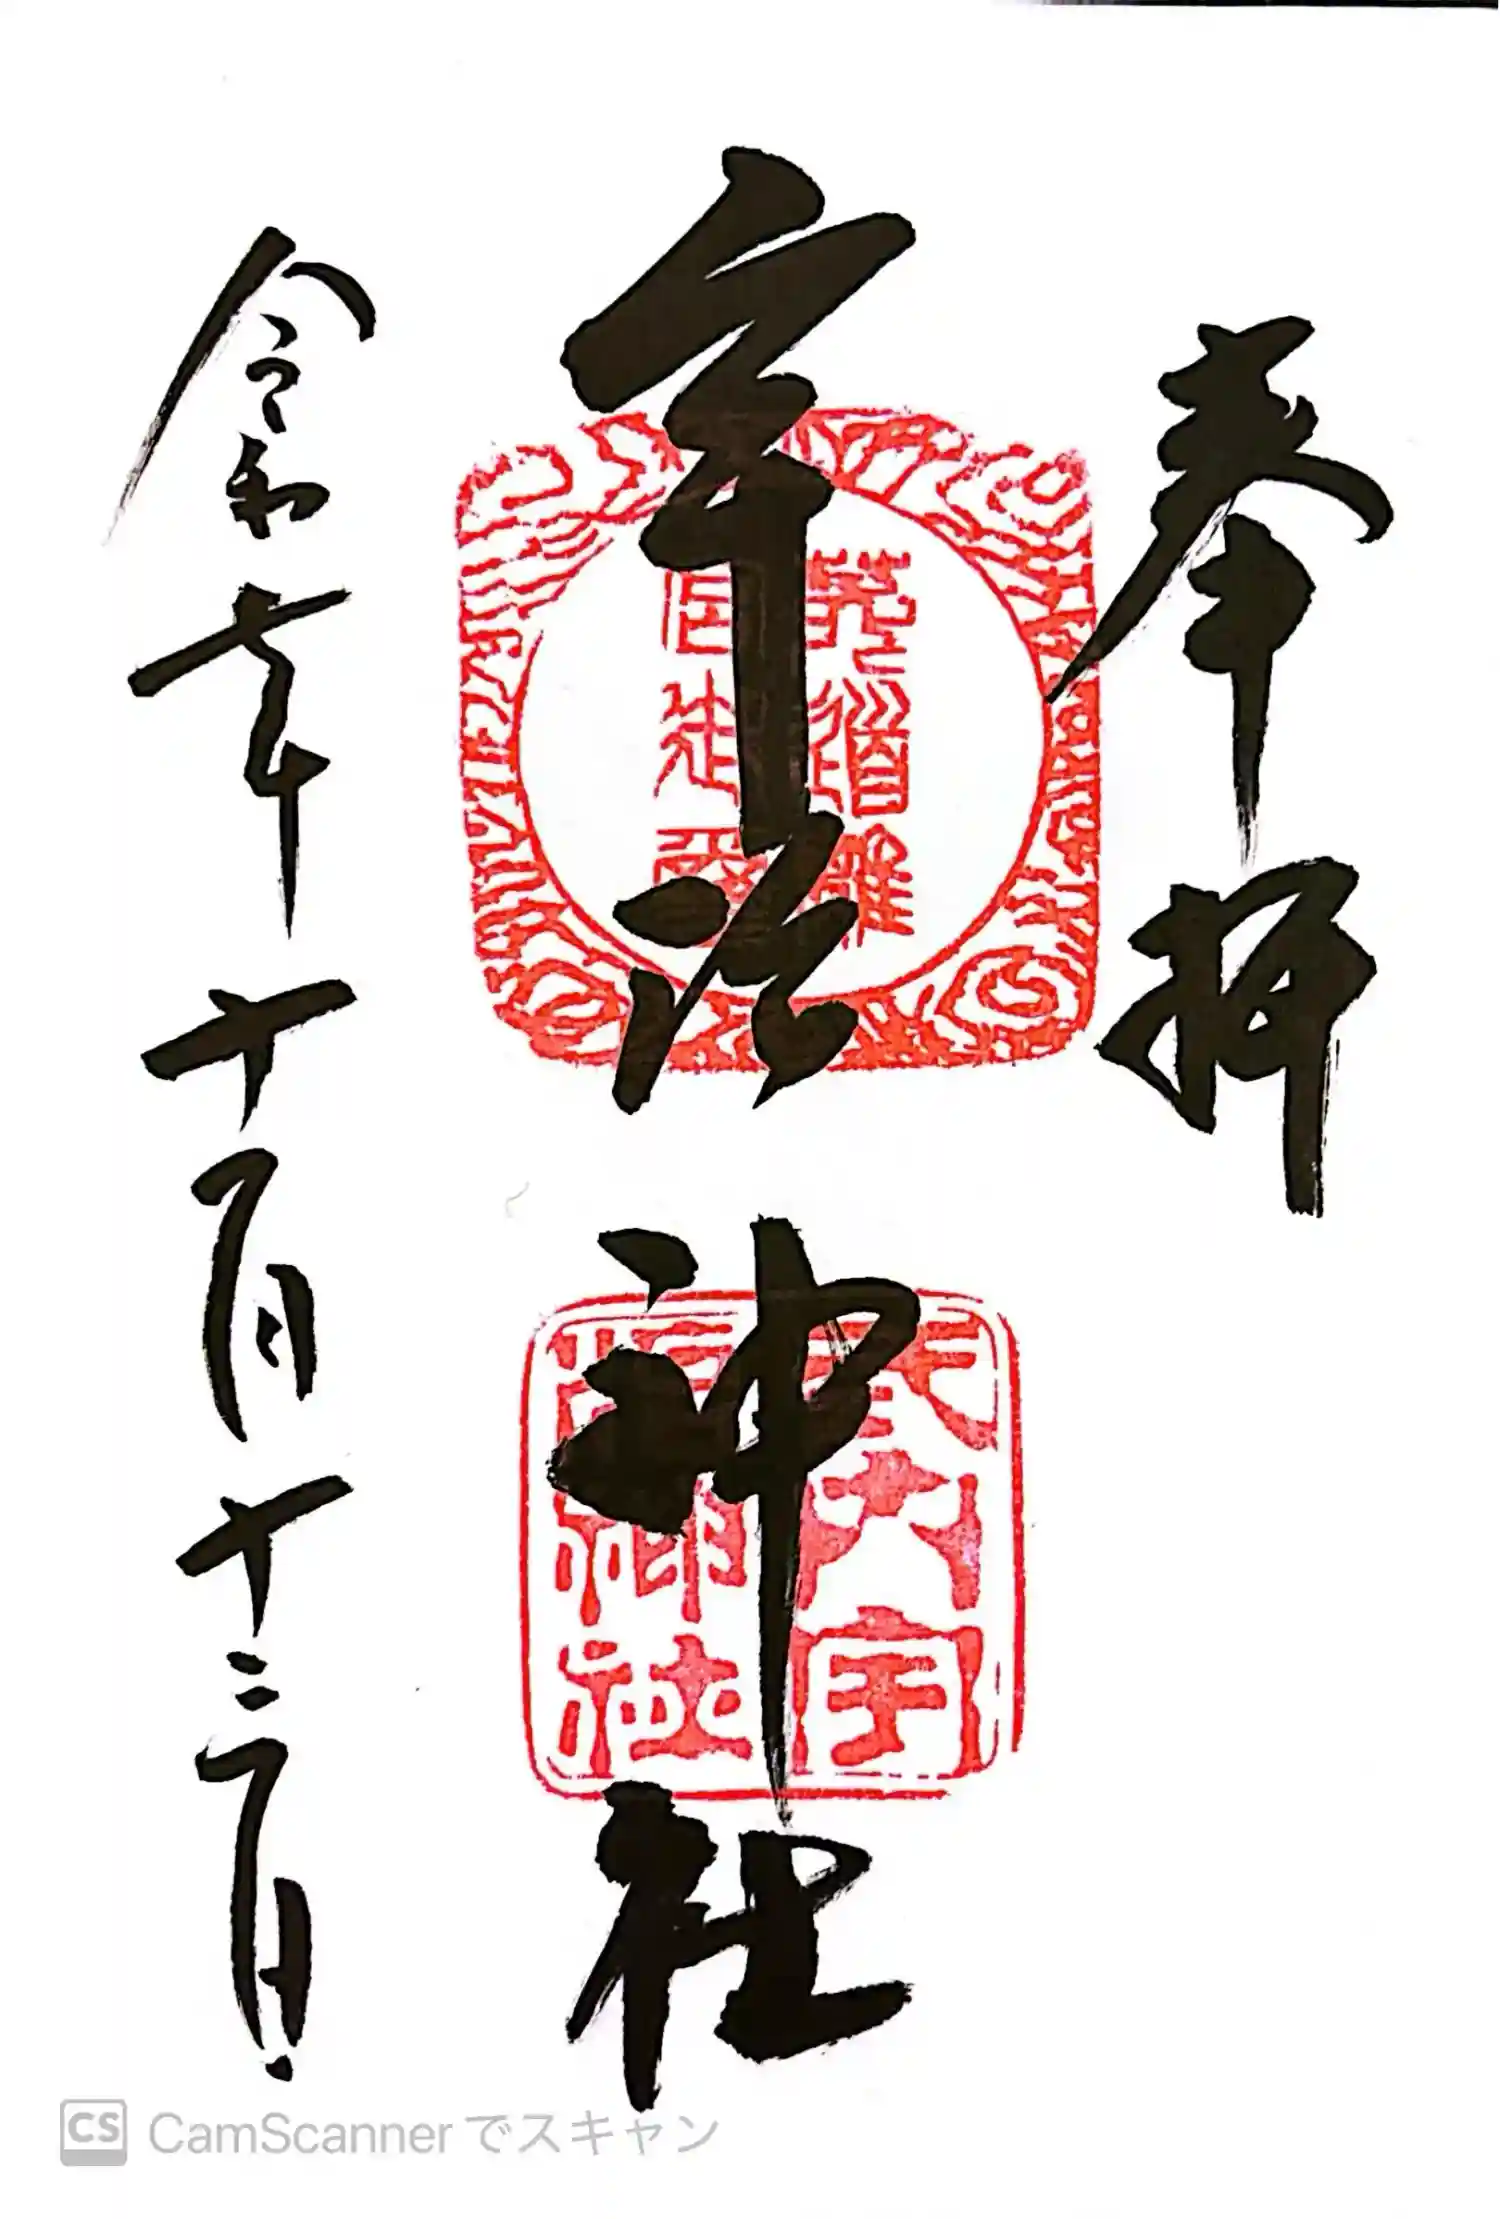 奉拝
宇治神社
令和七年十月十二日
CS CamScannerでスキャン